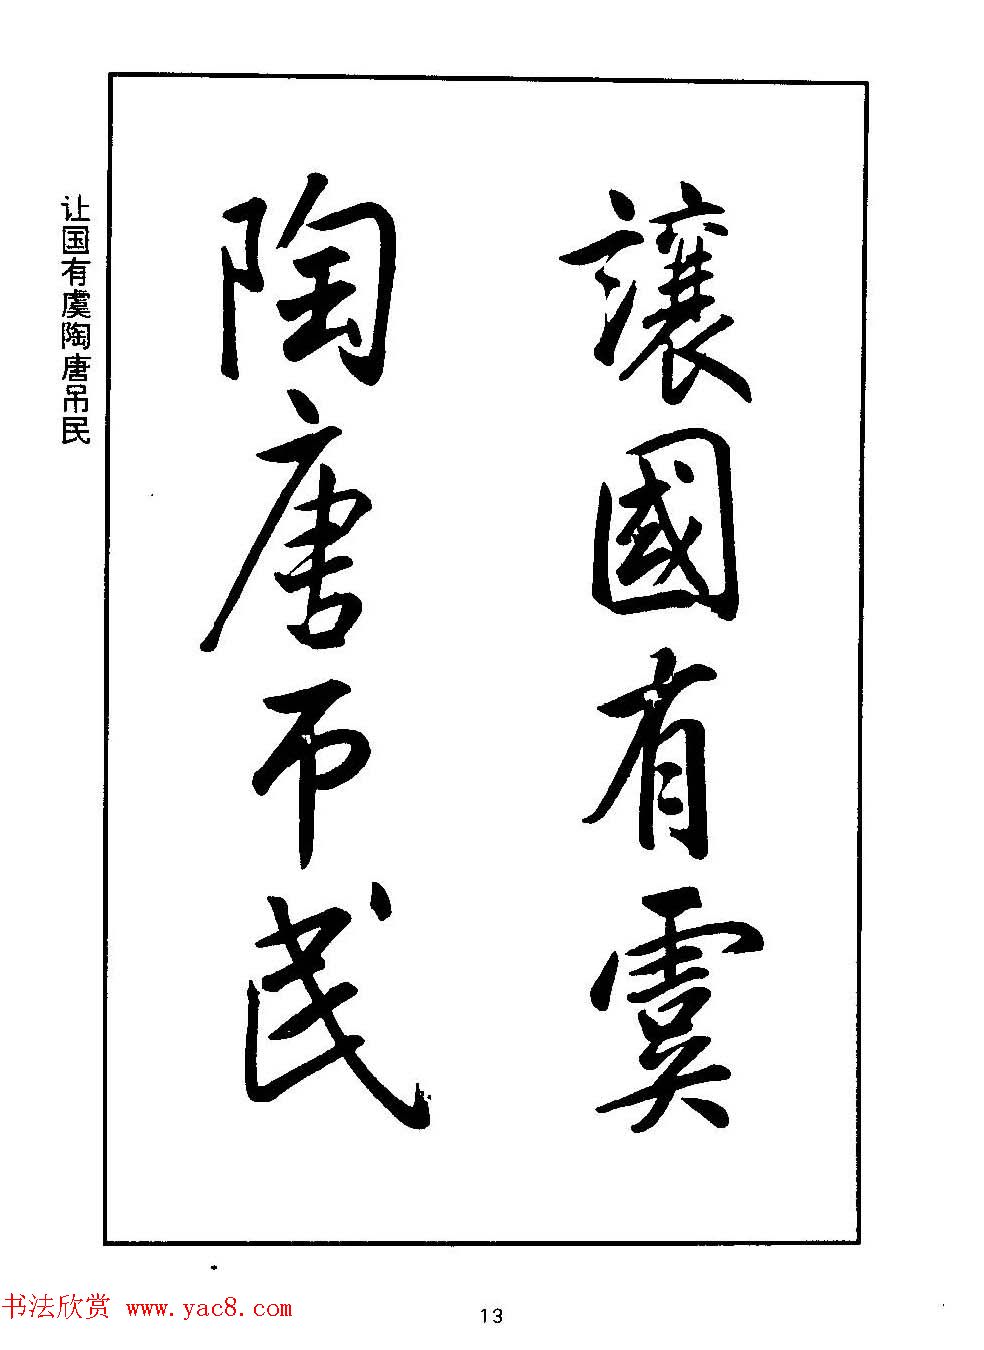 讓國有虞
陶唐吊民
让国有虞陶唐吊民
书法欣赏 www.yac8.com
13